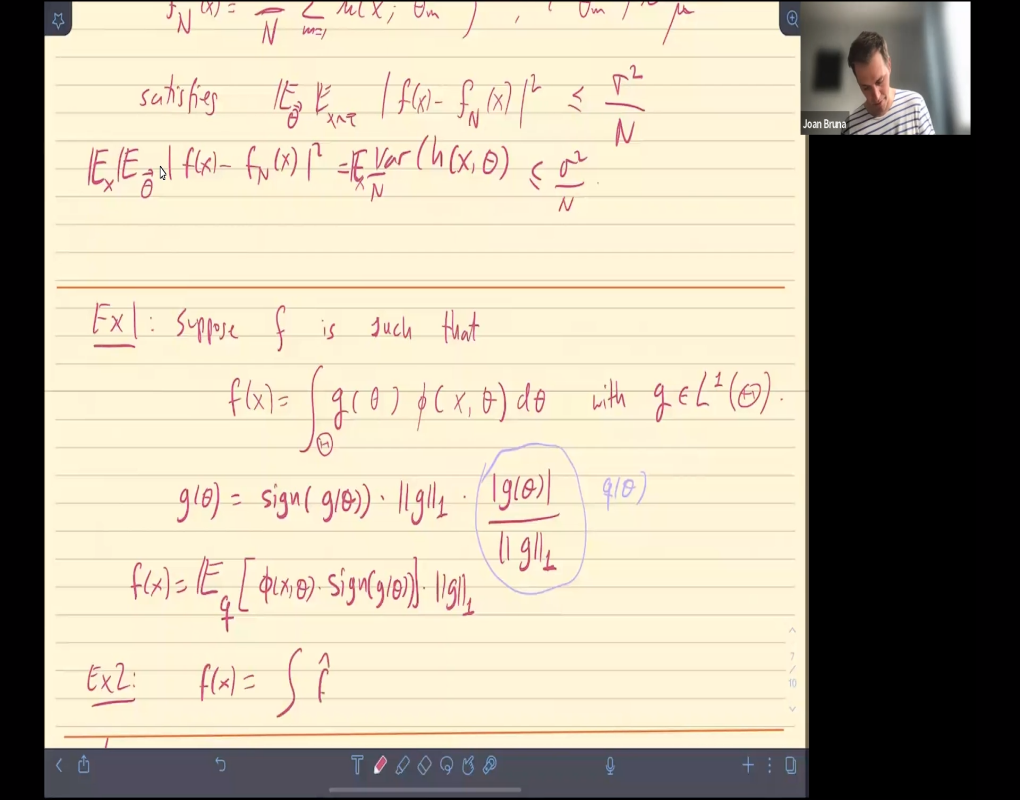 f_N(x) = 1/N Σ_{m=1} h(x; θ_m)
satisfies 𝔼_θ⃗ 𝔼_{x~τ} |f(x) - f_N(x)|² ≤ σ²/N
𝔼_x 𝔼_θ⃗ |f(x) - f_N(x)|² = 𝔼_x 1/N Var(h(x,θ) ≤ σ²/N
Ex1: Suppose f is such that
f(x) = ∫_Θ g(θ) ϕ(x,θ) dθ with g ∈ L¹(Θ).
g(θ) = sign(g(θ)) · ||g||₁ · |g(θ)| / ||g||₁ q(θ)
f(x) = 𝔼_q [ϕ(x,θ) · sign(g(θ))] · ||g||₁
Ex2: f(x) = ∫ f̂
Joan Bruna
7
/
10